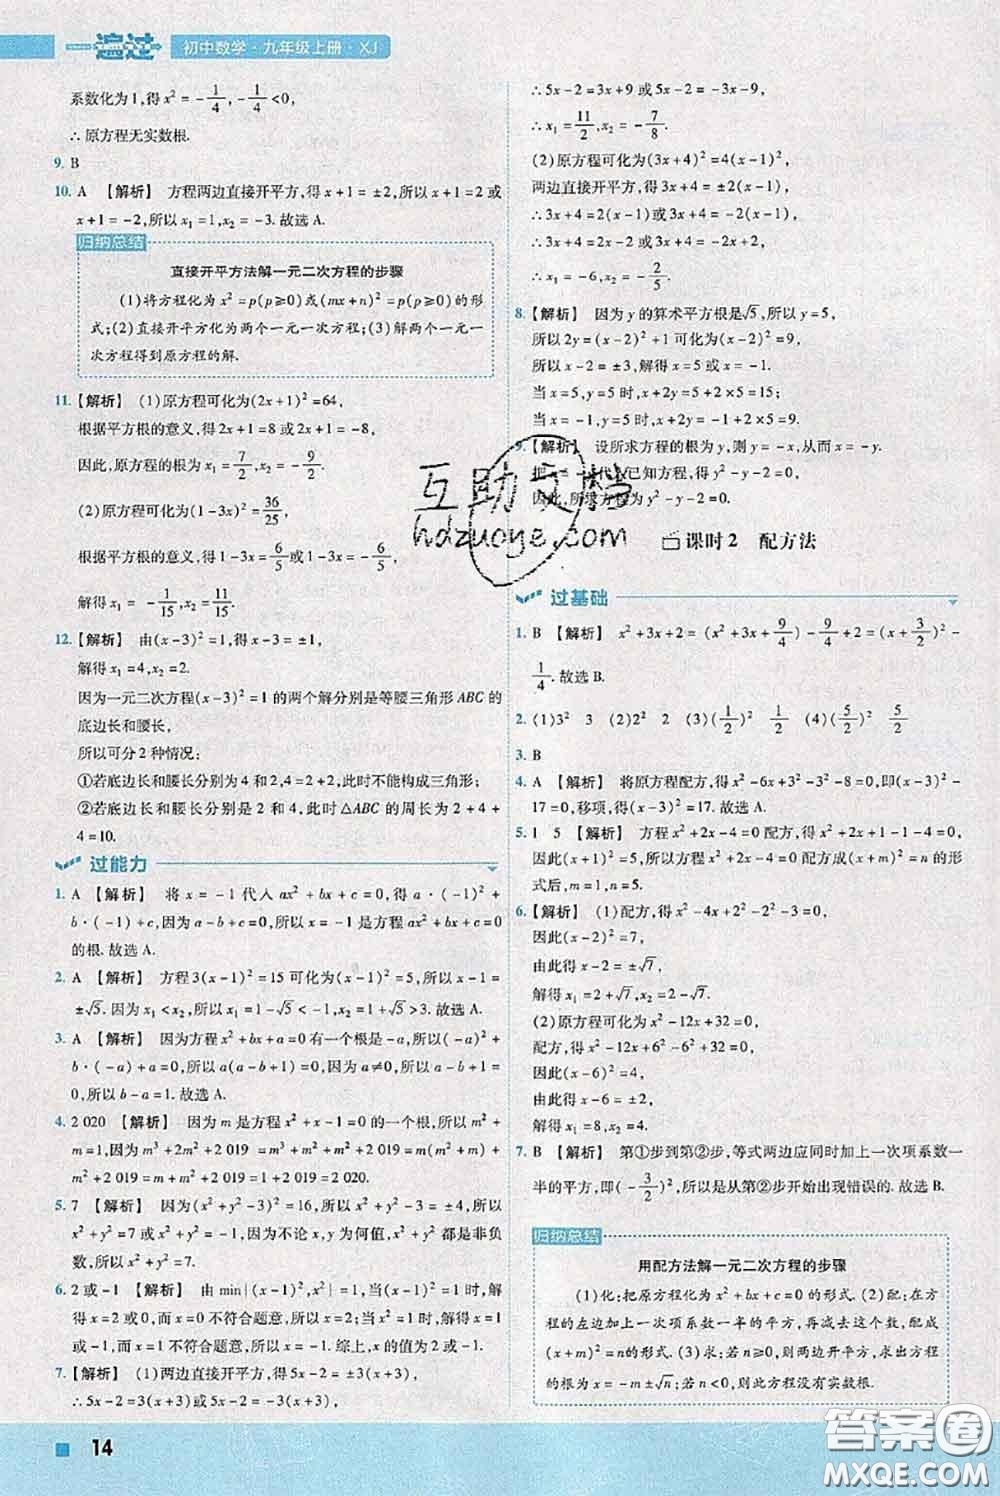 一遍过 初中数学·九年级上册·XJ
系数化为1,得x²=-1/4,-1/4<0,
∴原方程无实数根.
9. B
10. A 【解析】 方程两边直接开平方,得x+1=±2,所以x+1=2或
x+1=-2,所以x₁=1,x₂=-3.故选A.
归纳总结
直接开平方法解一元二次方程的步骤
(1)将方程化为x²=p(p≥0)或(mx+n)²=p(p≥0)的形
式;(2)直接开平方化为两个一元一次方程;(3)解两个一元一
次方程得到原方程的解.
11.【解析】 (1)原方程可化为(2x+1)²=64,
根据平方根的意义,得2x+1=8或2x+1=-8,
因此,原方程的根为x₁=7/2,x₂=-9/2.
(2)原方程可化为(1-3x)²=36/25,
根据平方根的意义,得1-3x=6/5或1-3x=-6/5,
解得x₁=-1/15,x₂=11/15.
12.【解析】 由(x-3)²=1,得x-3=±1,
解得x₁=4,x₂=2.
因为一元二次方程(x-3)²=1的两个解分别是等腰三角形ABC的
底边长和腰长,
所以可分2种情况:
①若底边长和腰长分别为4和2,4=2+2,此时不能构成三角形;
②若底边长和腰长分别是2和4,此时△ABC的周长为2+4+
4=10.
过能力
1. A 【解析】 将x=-1代入ax²+bx+c=0,得a·(-1)²+
b·(-1)+c=0,因为a-b+c=0,所以x=-1是方程ax²+bx+c=0
的根.故选A.
2. A 【解析】 方程3(x-1)²=15可化为(x-1)²=5,所以x-1=
±√5.因为x₁<x₂,所以x₁=1-√5<-1.故选A.
3. A 【解析】 因为方程x²+bx+a=0有一个根是-a,所以(-a)²+
b·(-a)+a=0,所以a(a-b+1)=0,因为a≠0,所以a-b+1=0,
所以a-b=-1.故选A.
4. 2 020 【解析】 因为m是方程x²+x-1=0的一个根,所以m²+
m=1,因为m³+2m²+2 019=m³+m²+m²+2 019=m(m²+m)+
m²+2 019=m+m²+2 019=1+2 019=2 020.
5. 7 【解析】 因为(x²+y²-3)²=16,所以x²+y²-3=±4,所以
x²+y²=7或x²+y²=-1.因为不论x,y为何值,x²+y²都是非负
数,所以x²+y²=7.
6. 2或-1 【解析】 由min{(x-1)²,x²}=1,当(x-1)²=1时,解
得x=2或x=0,而x=0不符合题意,所以x=2;当x²=1时,解得x=1
或x=-1,而x=1不符合题意,所以x=-1.综上,x的值为2或-1.
7.【解析】 (1)两边直接开平方,得5x-2=±3(x+3),
∴5x-2=3(x+3)或5x-2=-3(x+3),
∴5x-2=3x+9或5x-2=-3x-9,
∴x₁=11/2,x₂=-7/8.
(2)原方程可化为(3x+4)²=4(x-1)²,
两边直接开平方,得3x+4=±2(x-1),
∴3x+4=2(x-1)或3x+4=-2(x-1),
∴3x+4=2x-2或3x+4=-2x+2,
∴x₁=-6,x₂=-2/5.
8.【解析】 因为y的算术平方根是√5,所以y=5,
所以2y=(x-2)²+1可化为(x-2)²=9,
所以x-2=±3,解得x=5或x=-1.
当x=5,y=5时,x+2y=5+2×5=15;
当x=-1,y=5时,x+2y=-1+10=9.
9.【解析】 设所求方程的根为y,则y=-x,从而x=-y.
把x=-y代入已知方程,得y²-y-2=0,
因此,所求方程为y²-y-2=0.
课时2 配方法
过基础
1. B 【解析】 x²+3x+2=(x²+3x+9/4)-9/4+2=(x+3/2)²-
1/4.故选B.
2. (1)3² 3 (2)2² 2 (3)(1/2)² 1/2 (4)(5/2)² 5/2
3. B
4. A 【解析】 将原方程配方,得x²-6x+3²-3²-8=0,即(x-3)²-
17=0,移项,得(x-3)²=17.故选A.
5. 1 5 【解析】 方程x²+2x-4=0配方,得x²+2x+1²-1²-4=0,
因此(x+1)²=5,所以方程x²+2x-4=0配方成(x+m)²=n的形
式后,m=1,n=5.
6.【解析】 (1)配方,得x²-4x+2²-2²-3=0,
因此(x-2)²=7,
由此得x-2=±√7,
解得x₁=2+√7,x₂=2-√7.
(2)原方程可化为x²-12x+32=0,
配方,得x²-12x+6²-6²+32=0,
因此(x-6)²=4,
由此得x-6=±2,
解得x₁=8,x₂=4.
7. B 【解析】 第①步到第②步,等式两边应同时加上一次项系数一
半的平方,即(-3/2)²,所以是从第②步开始出现错误的.故选B.
归纳总结
用配方法解一元二次方程的步骤
(1)化:把原方程化为x²+bx+c=0的形式.(2)配:在方
程的左边加上一次项系数一半的平方,再减去这个数,配成
(x+m)²=n的形式.(3)求:若n≥0,则两边开平方,求出方程
的根为x=-m±√n;若n<0,则原方程没有实数根.
14
互助文档
hdzuoye.com
答案圈
MXQE.COM